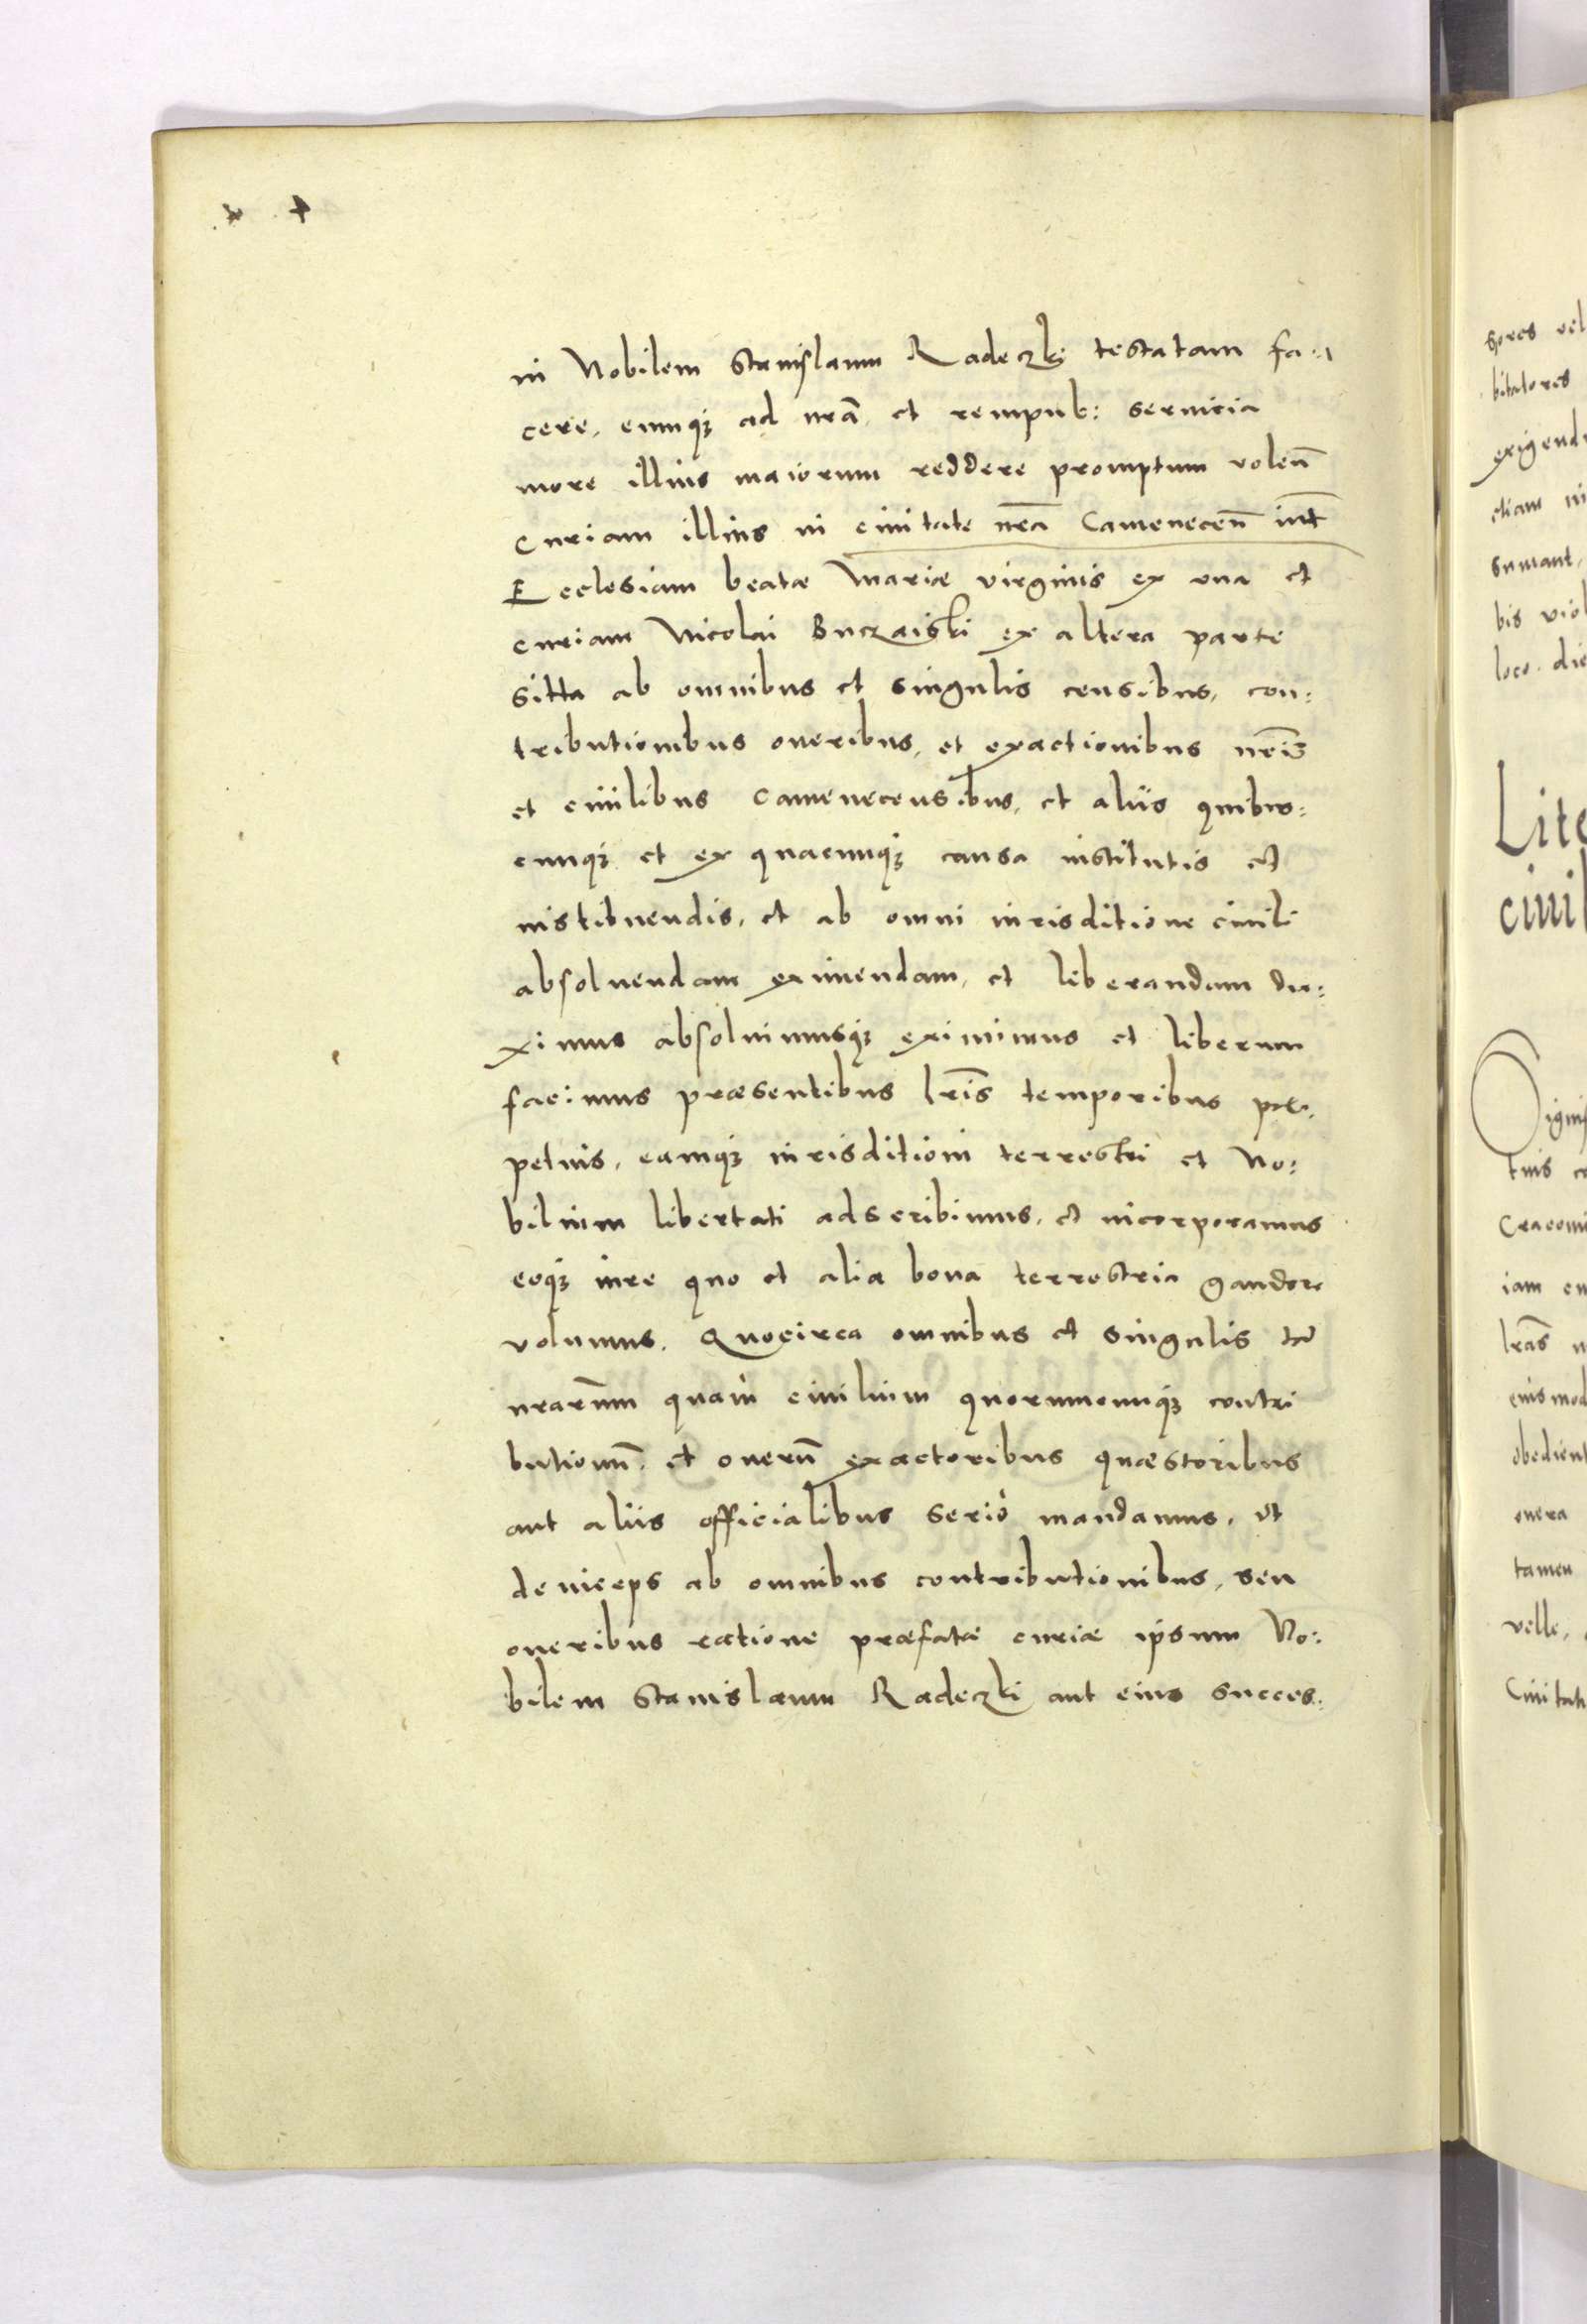 in Nobilem Stanislaum Radeczki testatam fa:
cere, eumq₃ ad nr̃a, et rempub: seruicia
more illius maiorum reddere promptum volen̄
curiam illius in ciuitate nr̃a Camenecen̄ int̄
Ecclesiam beatæ Mariæ virginis ex vna et
curiam Nicolai Buczaiski ex altera parte
sitta ab omnibus et singulis censibus, con:
tributionibus oneribus, et exactionibus nr̃is
et ciuilibus Camenecensibus, et aliis quibus:
cunq₃ et ex quacunq₃ causa institutis et
instibuendis, et ab omni iurisditione ciuili
absoluendam eximendam, et liberandam du:
ximus absoluimusq₃ eximimus et liberum
facimus præsentibus lr̃is temporibus per:
petuis, eamq₃ iurisditioni terrestri et No:
bilium libertati adscribimus, et incorporamus
eoq₃ iure quo et alia bona terrestria gaudere
volumus. Quocirca omnibus et singulis tā
nrarum̄ quàm ciuilium quorumcunq₃ contri
butionū, et onerū exactoribus quæstoribus
aut aliis officialibus seriò mandamus, vt
deniceps ab omnibus contributionibus, seu
oneribus ratione præfatæ curiæ ipsum No:
bilem Stanislaum Radeczki aut eius succes:
spores vel
bitatores
exigend
etiam in
sumant,
bis viol
loco. die
Lite
ciuil
Dignis
tuis
Cracoui
iam
lr̃as
eiusmod
obedient
onera
tamen
velle,
Ciuitat